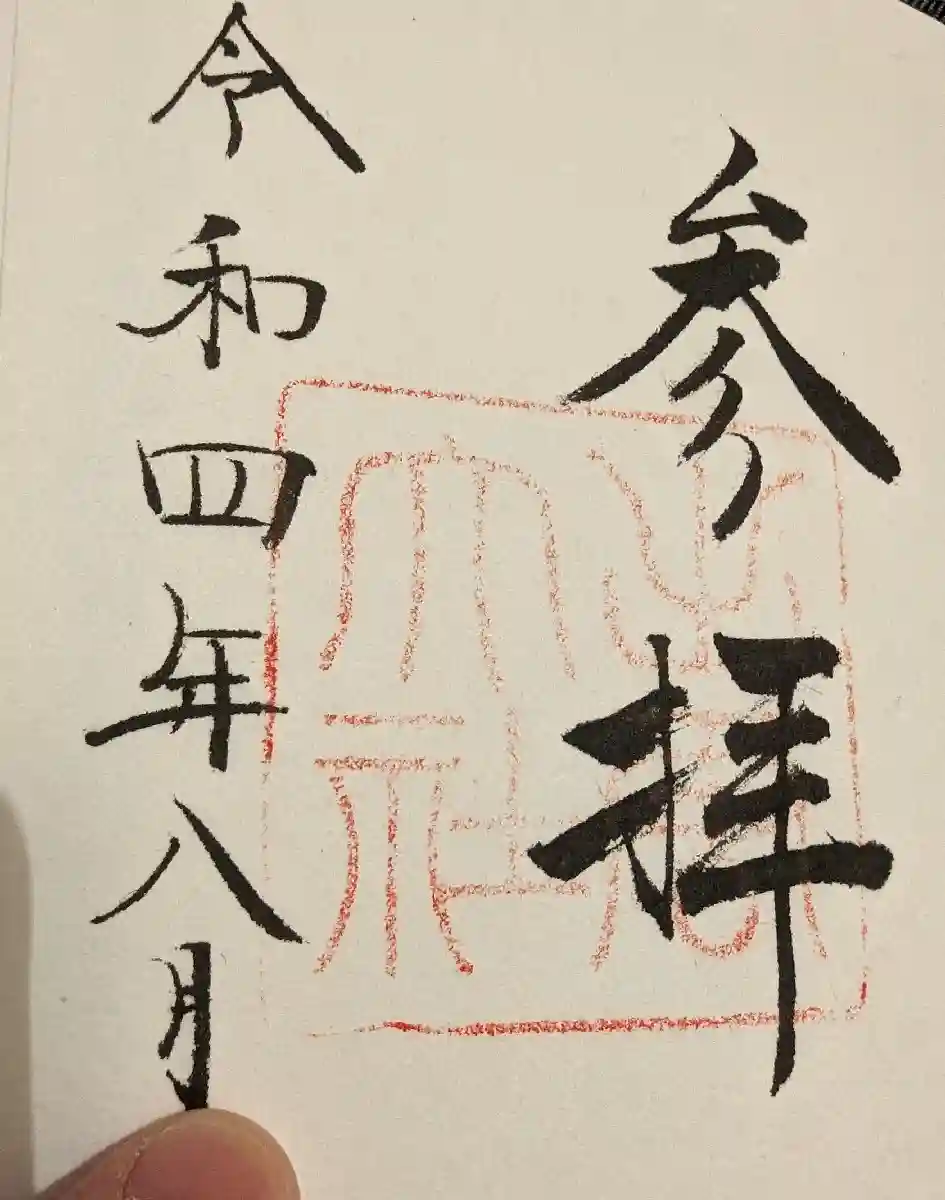 参拝
令和四年八月